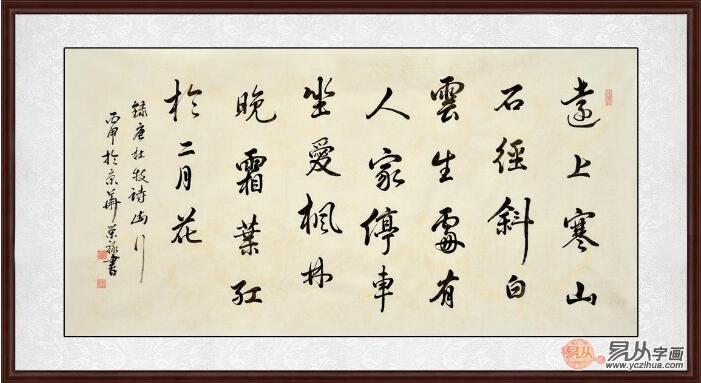 遠上寒山
石徑斜白
雲生處有
人家停車
坐愛楓林
晚霜葉紅
於二月花
錄唐杜牧詩山行
丙申於京華榮祿書
易从
易从字画
www.yczihua.com